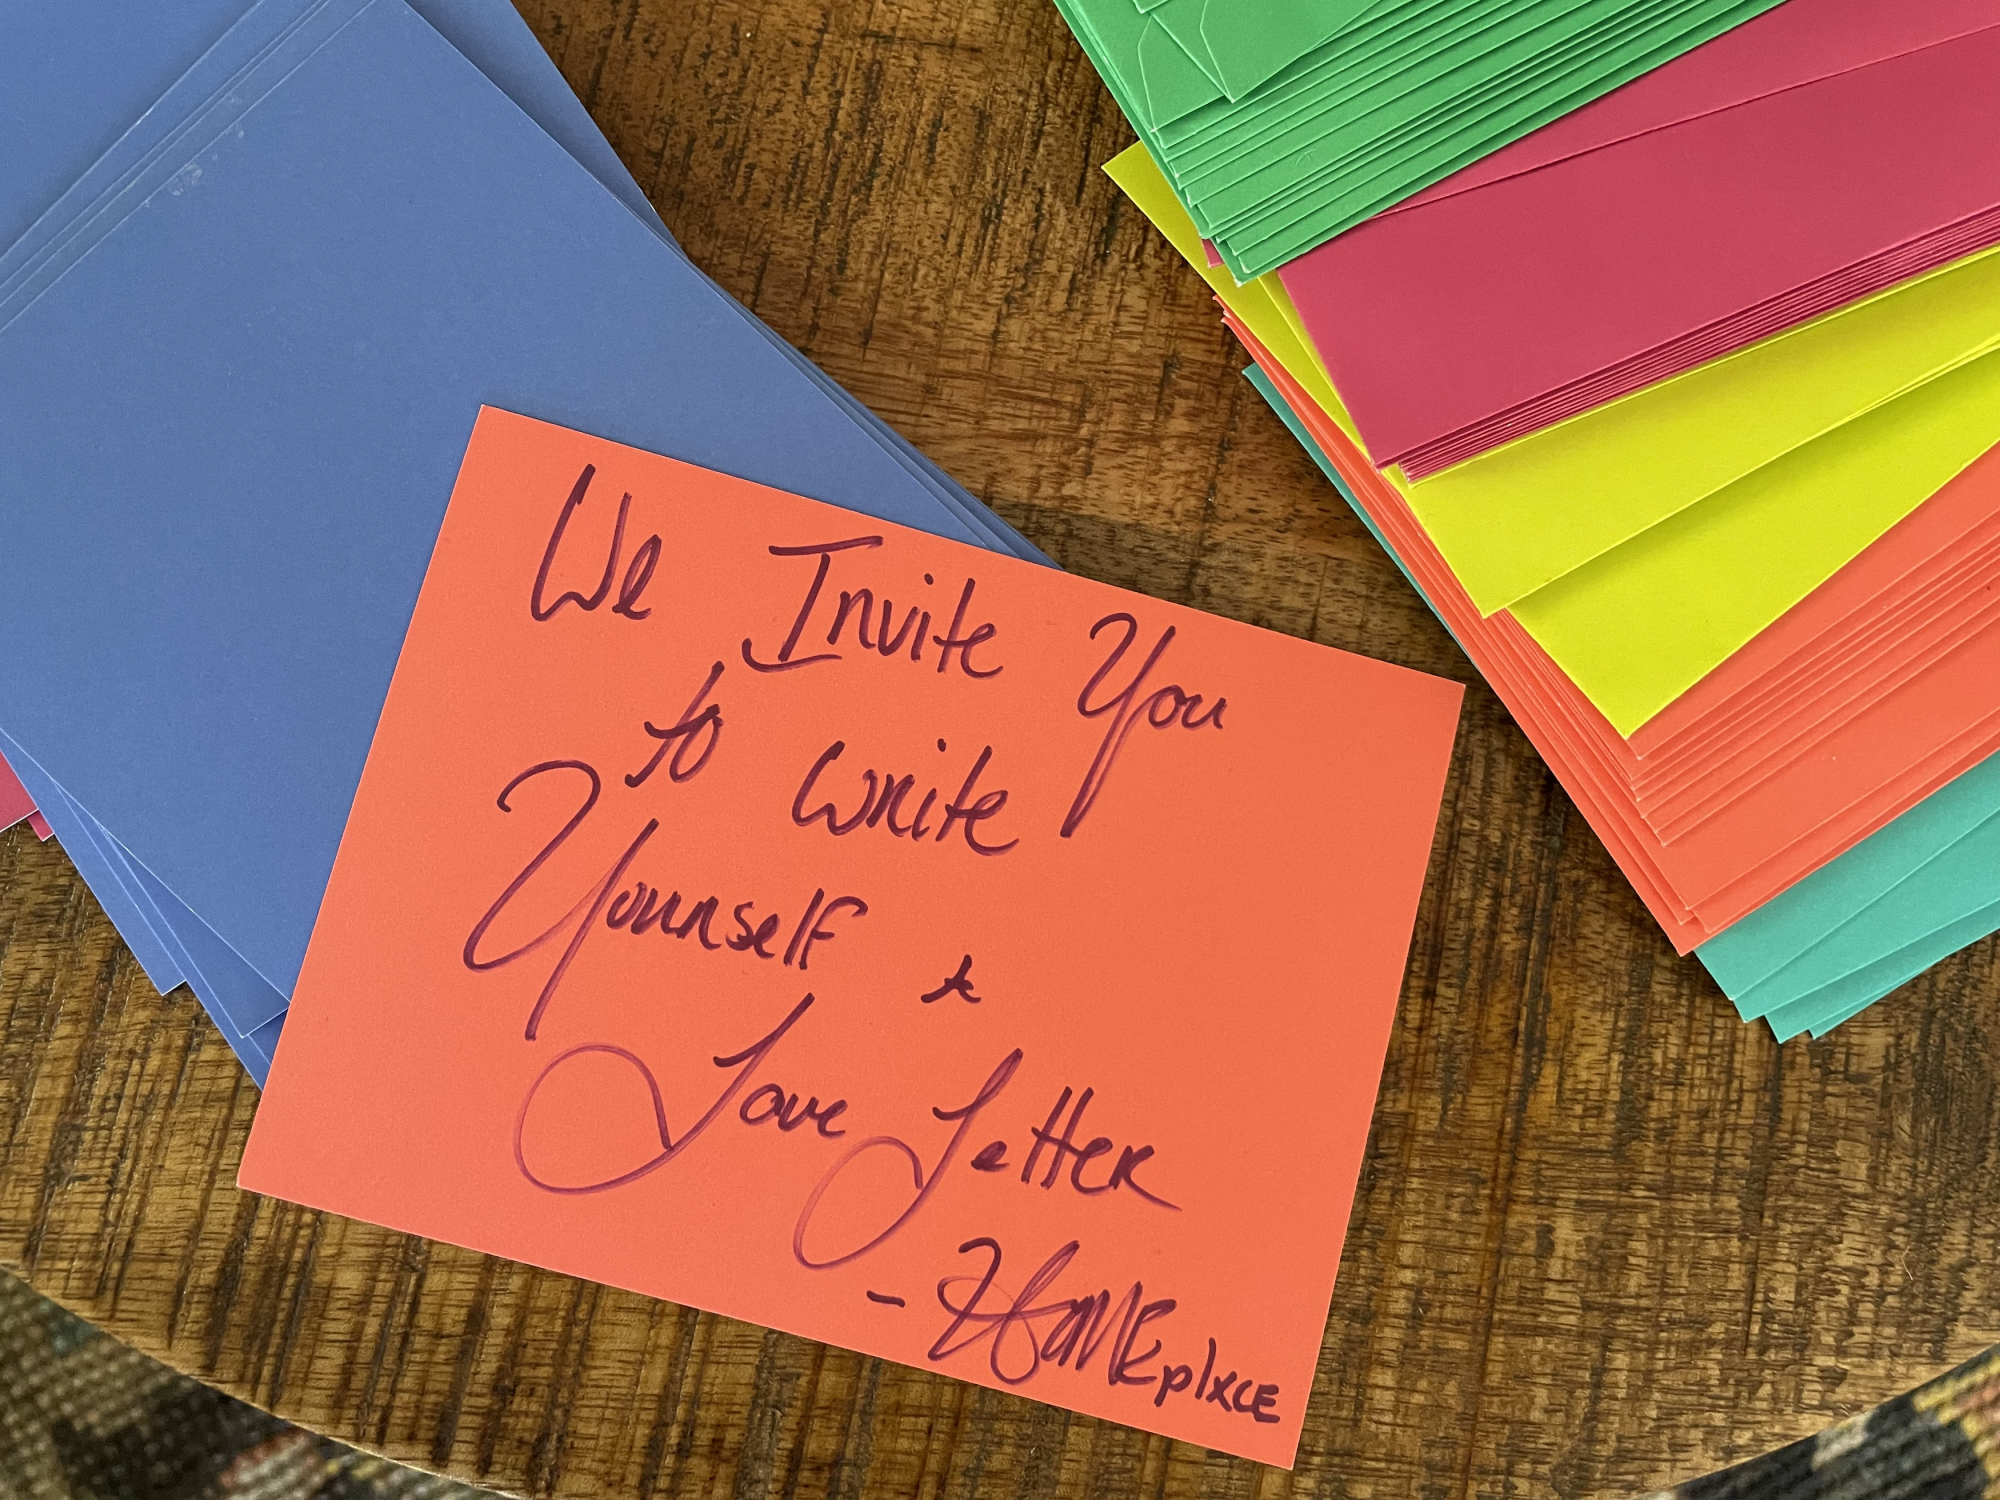 We Invite You
to write
Yourself a
Love Letter
- Homeplxce